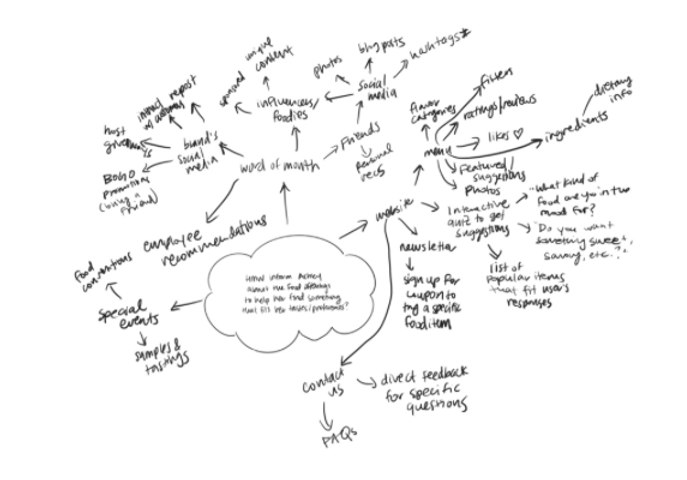 unique
content
sponsored
photos
blog posts
hashtags*
social
media
influencers/
foodies
interact
w/ customers
repost
host
giveaways
brand's
social
media
BOGO
promotions
(bring a
friend)
word of mouth
Friends
personal
recs
employee
recommendations
food
conventions
special
events
samples &
tastings
about the food offerings
to help her find something
that fits her tastes/preferences?
website
flavor
categories
filters
ratings/reviews
likes ♡
menu
ingredients
dietary
info
Featured/
suggestions
Photos
Interactive
quiz to get
suggestions
"What kind of
food are you in the
mood for?"
"Do you want
something sweet,
savory, etc.?"
list of
popular items
that fit user's
responses
newsletter
sign up for
coupon to
try a specific
food item
contact
us
direct feedback
for specific
questions
FAQs